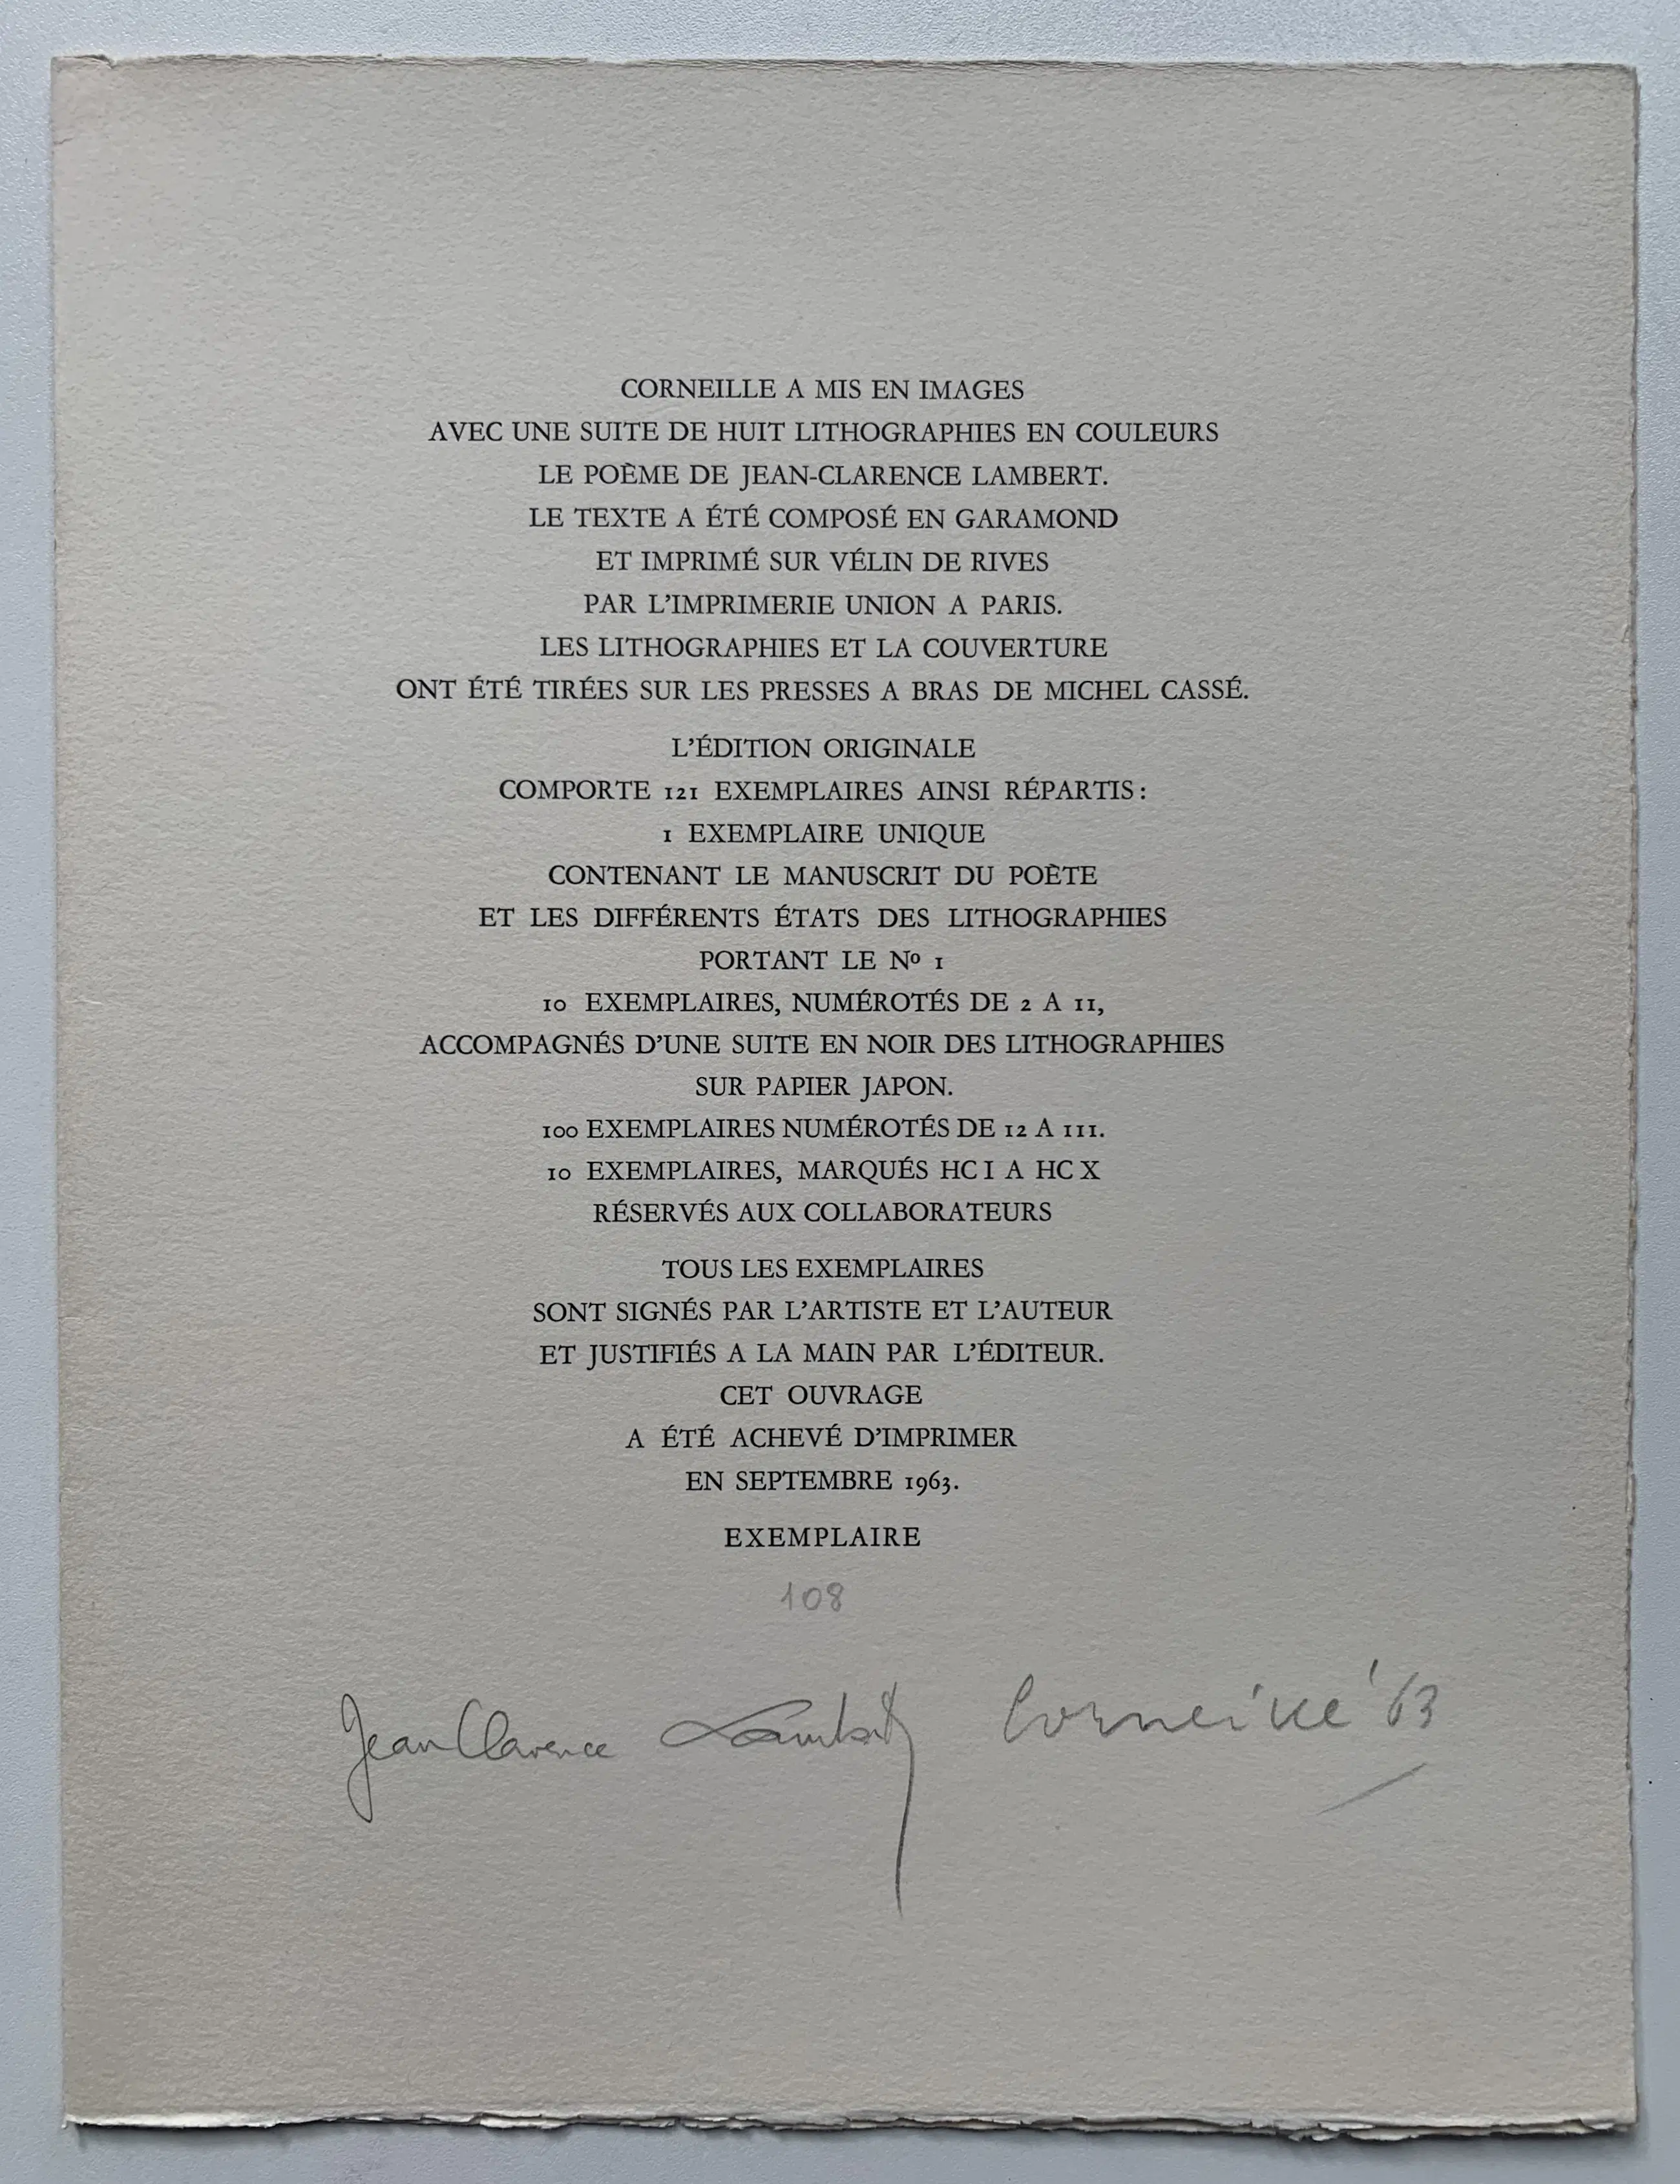 CORNEILLE A MIS EN IMAGES
AVEC UNE SUITE DE HUIT LITHOGRAPHIES EN COULEURS
LE POÈME DE JEAN-CLARENCE LAMBERT.
LE TEXTE A ÉTÉ COMPOSÉ EN GARAMOND
ET IMPRIMÉ SUR VÉLIN DE RIVES
PAR L’IMPRIMERIE UNION A PARIS.
LES LITHOGRAPHIES ET LA COUVERTURE
ONT ÉTÉ TIRÉES SUR LES PRESSES A BRAS DE MICHEL CASSÉ.
L’ÉDITION ORIGINALE
COMPORTE 121 EXEMPLAIRES AINSI RÉPARTIS :
1 EXEMPLAIRE UNIQUE
CONTENANT LE MANUSCRIT DU POÈTE
ET LES DIFFÉRENTS ÉTATS DES LITHOGRAPHIES
PORTANT LE Nº 1
10 EXEMPLAIRES, NUMÉROTÉS DE 2 A 11,
ACCOMPAGNÉS D’UNE SUITE EN NOIR DES LITHOGRAPHIES
SUR PAPIER JAPON.
100 EXEMPLAIRES NUMÉROTÉS DE 12 A 111.
10 EXEMPLAIRES, MARQUÉS HC I A HC X
RÉSERVÉS AUX COLLABORATEURS
TOUS LES EXEMPLAIRES
SONT SIGNÉS PAR L’ARTISTE ET L’AUTEUR
ET JUSTIFIÉS A LA MAIN PAR L’ÉDITEUR.
CET OUVRAGE
A ÉTÉ ACHEVÉ D’IMPRIMER
EN SEPTEMBRE 1963.
EXEMPLAIRE
108
Jean Clarence Lambert Corneille '63